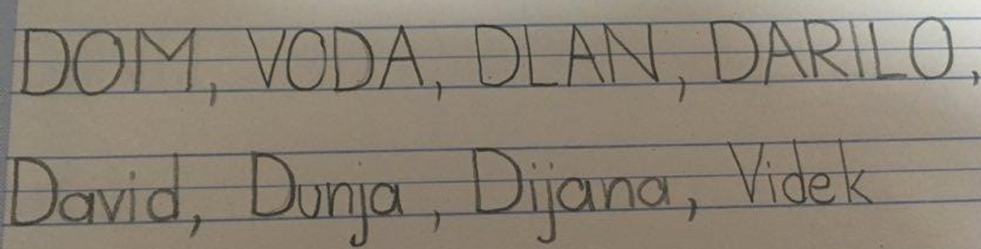 DOM, VODA, DLAN, DARILO,
David, Dunja, Dijana, Videk